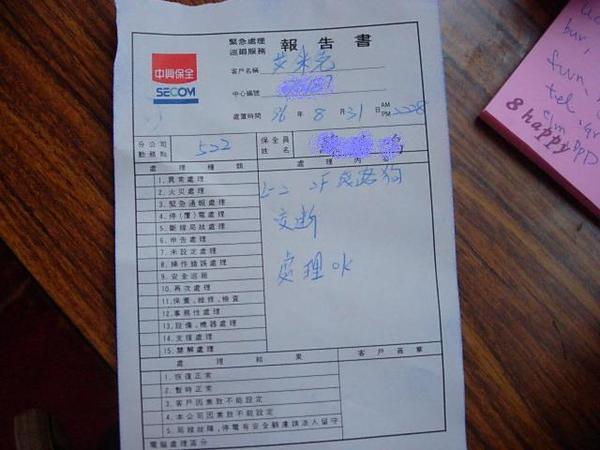 緊急處理
巡迴服務 報告書
中興保全
SECOM
客戶名稱
中心編號
處置時間 96 年 8 月 31 日 AM PM 2028
分公司 勤務點 522 保全員 姓名
處理種類 處理內容
1.異常處理
2.火災處理
3.緊急通報處理
4.停(覆)電處理
5.斷線局故處理
6.申告處理
7.未設定處理
8.操作錯誤處理
9.安全巡檢
10.再次處理
11.保養,維修,檢查
12.事務性處理
13.設備,機器處理
14.支援處理
15.禁解處理
L-2 2F 線路狗
咬斷
處理 ok
處理結果 客戶簽章
1.恢復正常
2.暫時正常
3.客戶因素致不能設定
4.本公司因素致不能設定
5.局線故障,停電有安全顧慮請派人留守
電腦處理區分
8 happy
bur,
fun,
tel